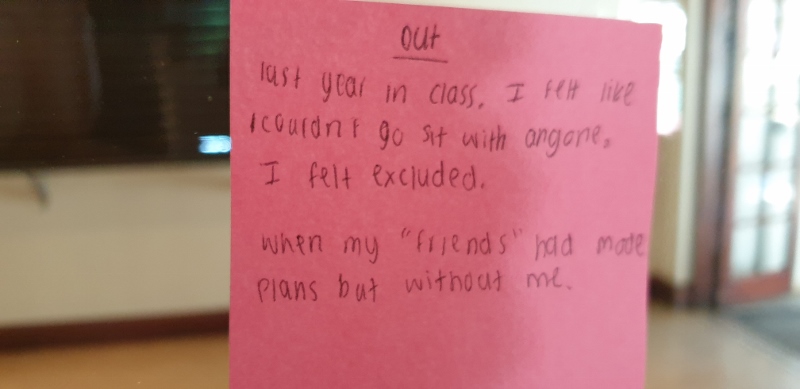 out
last year in class. I felt like
I couldn't go sit with anyone.
I felt excluded.
when my "friends" had made
plans but without me.